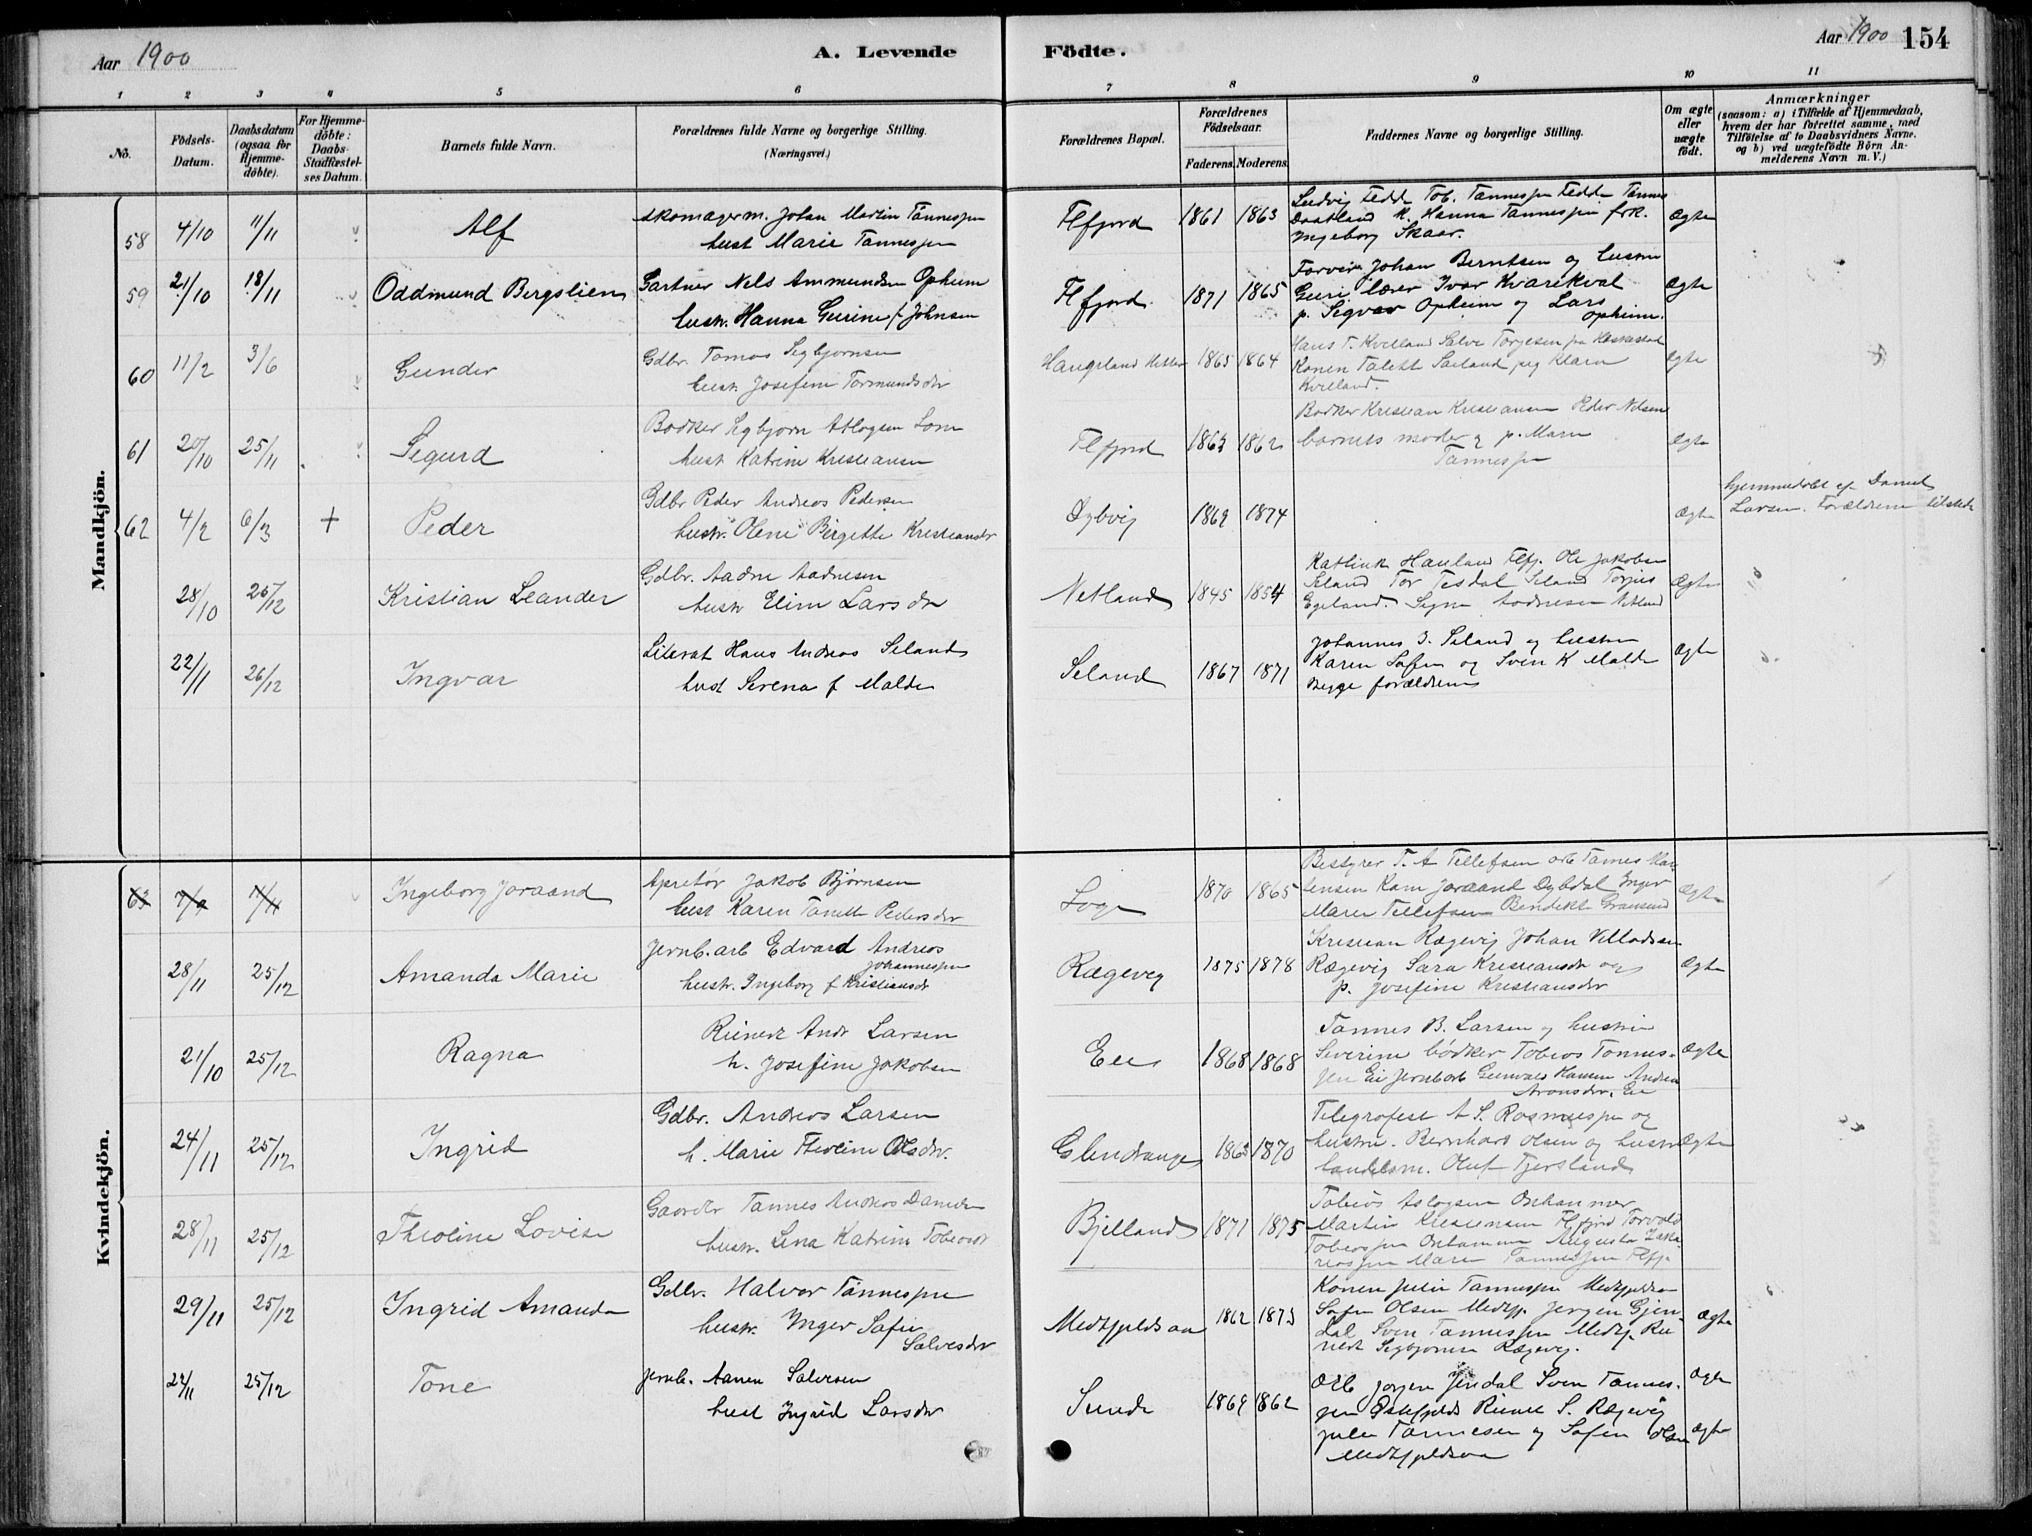 Aar 1900
A. Levende
Födte.
Aar 1900
154
1 2 3 4 5 6 7 8 9 10 11
No.
Födsels-Datum.
Daabsdatum (ogsaa for Hjemme-döbte).
For Hjemme-döbte: Daabs-Stadfæstel-ses Datum.
Barnets fulde Navn.
Forældrenes fulde Navne og borgerlige Stilling.
(Næringsvei.)
Forældrenes Bopæl.
Forældrenes Födselsaar.
Faderens. Moderens.
Faddernes Navne og borgerlige Stilling.
Om ægte eller uægte födt.
Anmærkninger
(saasom: a) i Tilfælde af Hjemmedaab,
hvem der har forrettet samme, med
Tilföielse af to Daabsvidners Navne.
og b) ved uægtefödte Börn An-
melderens Navn m. V.)
Mandkjön.
58 4/10 11/11 Alf
Skomagerm. Johan Martin Tønnesen
hust Marie Tønnesen
Flfjord 1861 1863
Ludvig Fedde Tob. Tønnesen Fedde Tønnes
K. Hanna Tønnesen frk.
Ingeborg Skaar.
Ægte
59 21/10 18/11 Oddmund Bergslien
Gartner Nels Ammundsen Opheim
hustr. Hanna Gurine f. Johnsen
Flfjord 1871 1865
Farver Johan Berntsen og hustru
Guri lærer Ivar Kvarekval
p. Sigvor Opheim og Lars
opheim.
Ægte
60 11/2 3/6 Gunder
Gdbr. Tomas Segbjørnsen
hust. Josefine Tormundsdtr
Haugeland 1865 1864
Hans T. Kvelland Salve Torjesen
Konen Talette Søeland pig Klara
Kvelland.
Ægte
61 20/10 25/11 Segurd
Bødker Segbjørn Atlogsen
hust Katrine Kristiansen
Flfjord 1863 1862
Bødker Kristian Kristiansen Peder Nelsen
barnets moder og p. Marie
Tønnesen
Ægte
62 4/2 6/3 + Peder
Gdbr Peder Andreas Pedersen
hustr. Oline Birgitte Kristiansdtr
Dybvig 1869 1874
Ægte
hjemmedøbt af Daniel
Larsen. Forældrene tilstede
28/10 26/12 Kristian Leander
Gdbr. Aadne Aadnesen
hustr Eline Larsdtr
Netland 1845 1854
Hauland Flfj. Ole Jakobsen
Seland Tor Tesdal Seland Torjus
Egeland. Signe Aadnesen Netland
Ægte
22/11 26/12 Ingvar
Literat Hans Andreas Seland
hust Serena f Malde
Seland 1867 1871
Johannes J. Seland og hustru
Karen Sofie og Sven K Malde
Begge forældrene
Ægte
Kvindekjön.
63 7/9 11/11 Ingeborg Joraand
Apretør Jakob Bjørnsen
hust Karen Tonette Pedersdtr
Loge 1870 1865
Bestyrer T. A Tellefsen arb Tønnes
Joraand Dybdal Inger
Marie Tellefsen Bendikte
Ægte
28/11 25/12 Amanda Marie
Jernb. arb Edvard Andreas
Johannesen
hustr. Ingeborg f Kristiansdr
Rægevig 1875 1878
Kristian Rægevig Johan Villadsen
Rægevig Sara Kristiansdr og
p. Josefine Kristiansdtr
Ægte
21/10 25/12 Ragna
Reinert Andr Larsen
h. Josefine Jakobsen
Eie 1868 1868
Tønnes B. Larsen og hustru
Severine bødker Tobias Tønnes-
sen Eie Jernbarb Gunvald Hansen Andrea
Aronsdtr. Eie
Ægte
24/11 25/12 Ingrid
Gdbr. Andreas Larsen
h. Marie Theoline Olsdtr.
Glendrange 1863 1870
Telegrafist A S. Rasmussen og
hustru. Bernhard Olsen og hustru
handelsm. Oluf Fjersland
Ægte
28/11 25/12 Theoline Lovise
Gaardbr Tønnes Andreas Danielsen
hustr. Lena Katrine Tobiasdtr
Bjelland 1871 1875
Tobias Aslogsen Oxhammer
Martin Kristensen Flfjord Torvald
Tobiassen Oxhammer Augusta Zaka-
riassen Maren Tønnesen Flfj.
29/11 25/12 Ingrid Amanda
Gdbr. Halvor Tønnesen
hustr. Inger Sofie
Salvesdtr
Medhjeldsaa 1862 1873
Konen Julie Tønnesen
Sofie Olsen Jørgen Gjen-
dal Sven Tønnesen Rei-
nert Segbjørnsen Rægevig.
Ægte
24/11 25/12 Tone
Jernb. Aanen Salvesen
hust Ingrid Larsdtr
Sunde 1869 1862
Arb Jørgen Jendal Sven Tønnes-
sen Reinert S. Rægevig
Julie Tønnesen og Sofie Olsen
Ægte
Ægte